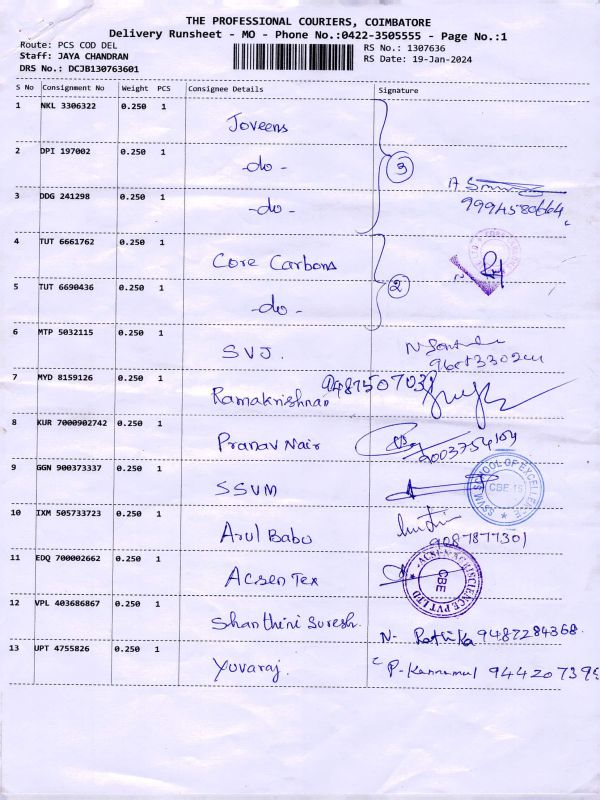 THE PROFESSIONAL COURIERS, COIMBATORE
Delivery Runsheet - MO - Phone No.:0422-3505555 - Page No.:1
Route: PCS COD DEL
RS No.: 1307636
Staff: JAYA CHANDRAN
RS Date: 19-Jan-2024
DRS No.: DCJB130763601
S No Consignment No Weight PCS Consignee Details Signature
1 NKL 3306322 0.250 1
Joveens
2 DPI 197002 0.250 1
-do-
3
3 DDG 241298 0.250 1
-do-
9994580664
4 TUT 6661762 0.250 1
Core Carbons
5 TUT 6690436 0.250 1
-do-
2
6 MTP 5032115 0.250 1
SVJ.
7 MYD 8159126 0.250 1
Ramakrishnan
8 KUR 7000902742 0.250 1
Pranav Nair
9003754104
9 GGN 900373337 0.250 1
SSVM
SSVM SCHOOL OF EXCELLENCE
CBE-19
10 IXM 505733723 0.250 1
Arul Babu
9087877301
11 EDQ 700002662 0.250 1
Acsen Tex
ACSEN AGRISCIENCE PVT LTD
CBE
12 VPL 403686867 0.250 1
Shanthini Suresh.
N- Rathika 9487284368
13 UPT 4755826 0.250 1
Yuvaraj.
P-Kannamal 944207395